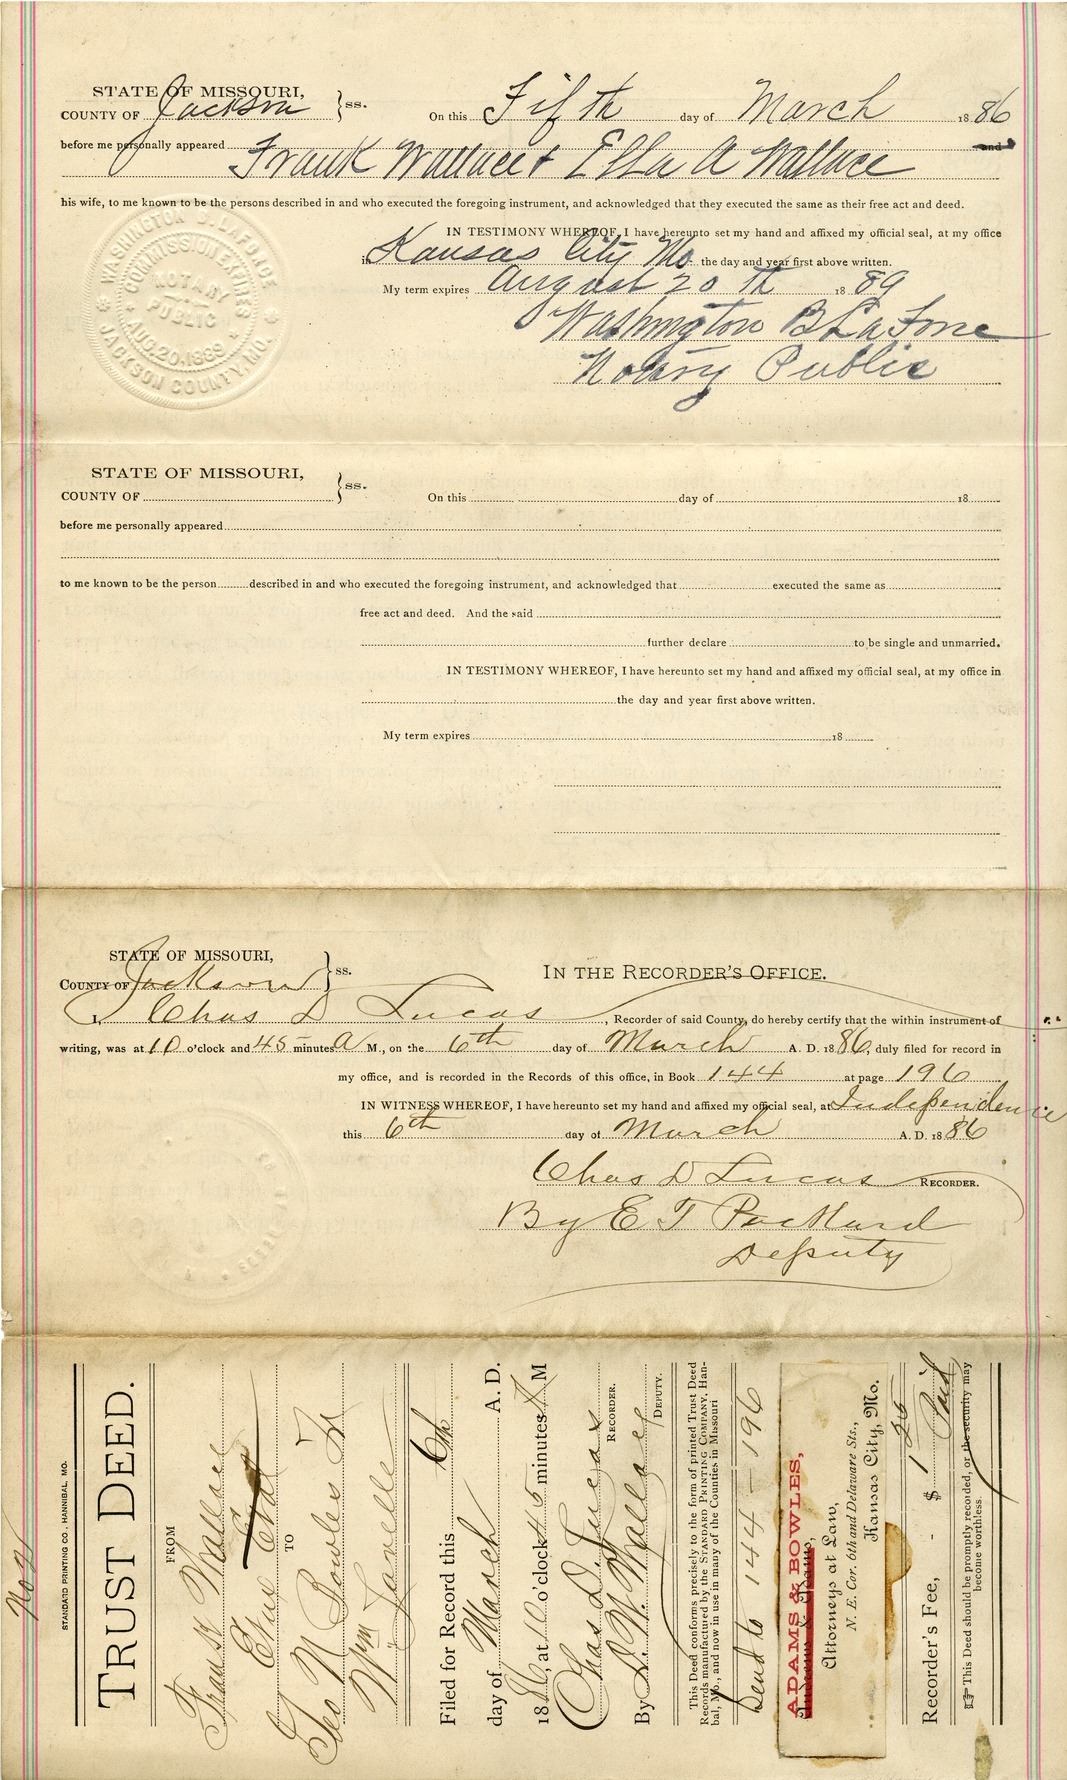 STATE OF MISSOURI,
COUNTY OF Jackson } ss. On this Fifth day of March 1886
before me personally appeared Frank Wallace & Ella A Wallace and
his wife, to me known to be the persons described in and who executed the foregoing instrument, and acknowledged that they executed the same as their free act and deed.
IN TESTIMONY WHEREOF, I have hereunto set my hand and affixed my official seal, at my office
in Kansas City Mo the day and year first above written.
My term expires August 20th 1889
Washington B LaForce
Notary Public
WASHINGTON B. LAFORCE
COMMISSION EXPIRES
NOTARY
PUBLIC
AUG. 20, 1889
JACKSON COUNTY, MO.
STATE OF MISSOURI,
COUNTY OF } ss. On this day of 18
before me personally appeared
to me known to be the person described in and who executed the foregoing instrument, and acknowledged that executed the same as
free act and deed. And the said
further declare to be single and unmarried.
IN TESTIMONY WHEREOF, I have hereunto set my hand and affixed my official seal, at my office in
the day and year first above written.
My term expires 18
STATE OF MISSOURI,
COUNTY OF Jackson } ss. IN THE RECORDER'S OFFICE.
I, Chas D Lucas, Recorder of said County, do hereby certify that the within instrument of
writing, was at 10 o'clock and 45 minutes A M., on the 6th day of March A. D. 1886, duly filed for record in
my office, and is recorded in the Records of this office, in Book 144 at page 196
IN WITNESS WHEREOF, I have hereunto set my hand and affixed my official seal, at Independence
this 6th day of March A. D. 1886
Chas D Lucas RECORDER.
By E T Packard
Deputy
No 2
STANDARD PRINTING CO., HANNIBAL, MO.
TRUST DEED.
FROM
Frank Wallace
TO
Geo N Bowles Tr
Wm
Filed for Record this 6th
day of March A. D.
1886, at 10 o'clock 45 minutes A M
Chas D. Lucas
RECORDER.
By D. W. Wallace
DEPUTY.
This Deed conforms precisely to the form of printed Trust Deed
Records manufactured by the STANDARD PRINTING COMPANY, Han-
bal, Mo., and now in use in many of the Counties in Missouri
Send to 144 - 196
ADAMS & BOWLES,
Attorneys at Law,
N. E. Cor. 6th and Delaware Sts.,
Kansas City, Mo.
Recorder's Fee, - $ 1 25 Paid
This Deed should be promptly recorded, or the security may
become worthless.